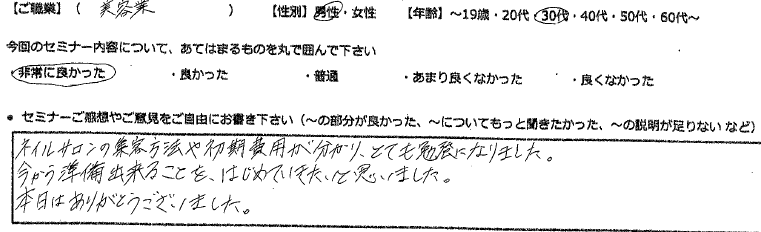 【ご職業】（ 美容業 ） 【性別】男性・女性 【年齢】～19歳・20代・30代・40代・50代・60代～
今回のセミナー内容について、あてはまるものを丸で囲んで下さい
・非常に良かった ・良かった ・普通 ・あまり良くなかった ・良くなかった
• セミナーご感想やご意見をご自由にお書き下さい（～の部分が良かった、～についてもっと聞きたかった、～の説明が足りない など）
ネイルサロンの集客方法や初期費用が分かり、とても勉強になりました。
今から準備出来ることを、はじめていきたいと思いました。
本日はありがとうございました。